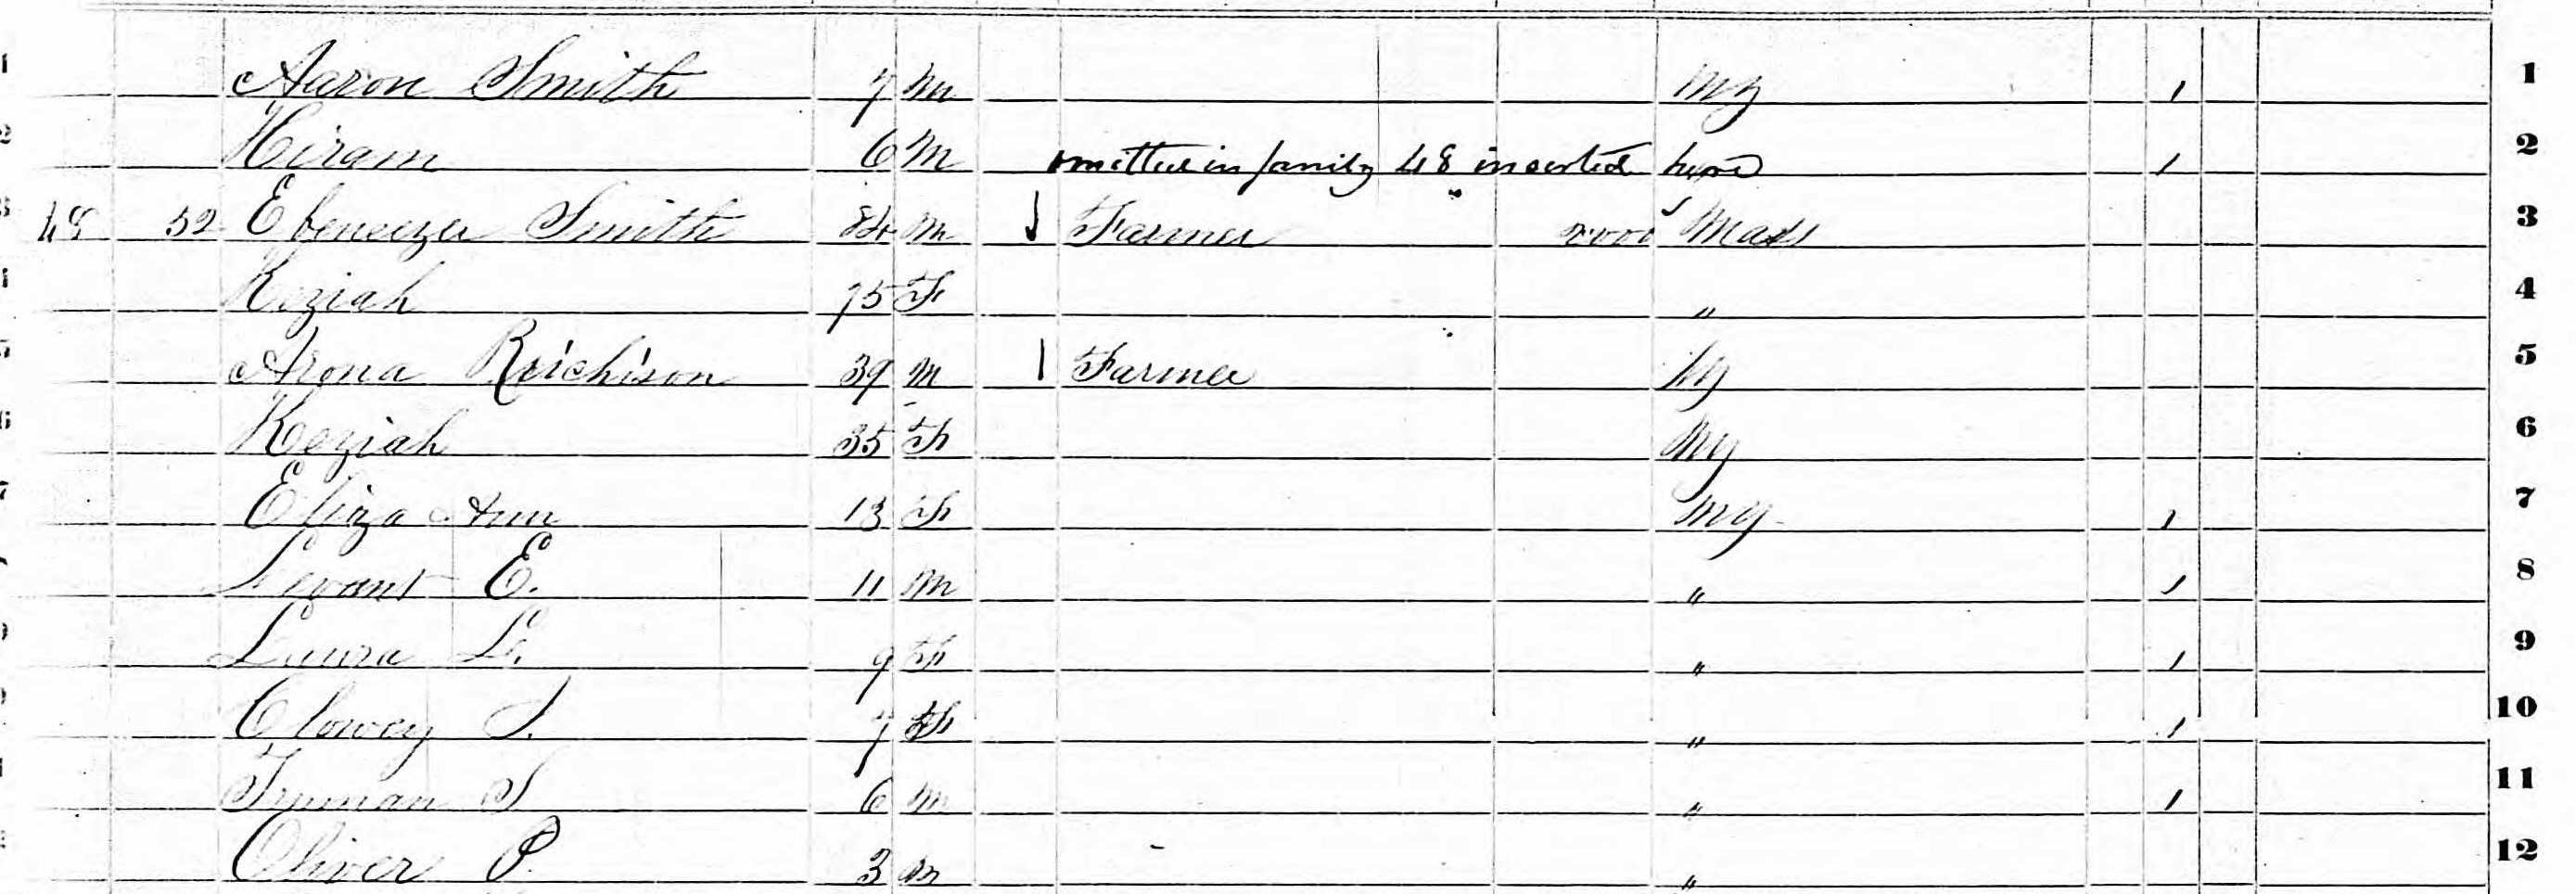 1 Aaron Smith 7 M NY 1 1
2 Hiram 6 M omitted in family 48 inserted here 1 2
48 52 Ebeneezer Smith 84 M 1 Farmer 2000 Mass 3
Keziah 75 F " 4
5 Arona Reichison 39 M 1 Farmer NY 5
6 Keziah 35 F NY 6
7 Eliza Ann 13 F NY 1 7
Levant E. 11 M " 1 8
Laura L. 9 F " 1 9
Clowey S. 7 F " 1 10
Truman S 6 M " 1 11
Oliver P. 3 M " 12